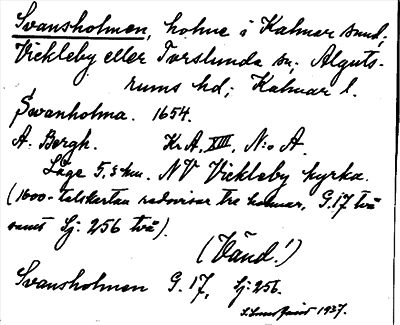 Svansholmen, holme i Kalmar sund,
Vickleby eller Torslunda sn; Alguts-
rums hd; Kalmar l.
Swanholma. 1654.
A. Bergh. Kr. A. XIII, N:o A.
Läge 5,3 km. NV Vickleby kyrka.
(1600-talskartan redovisar tre holmar, G.17 två
samt Lj: 256 två).
(Vänd!)
Svansholmen G. 17, Lj: 256.
1937.